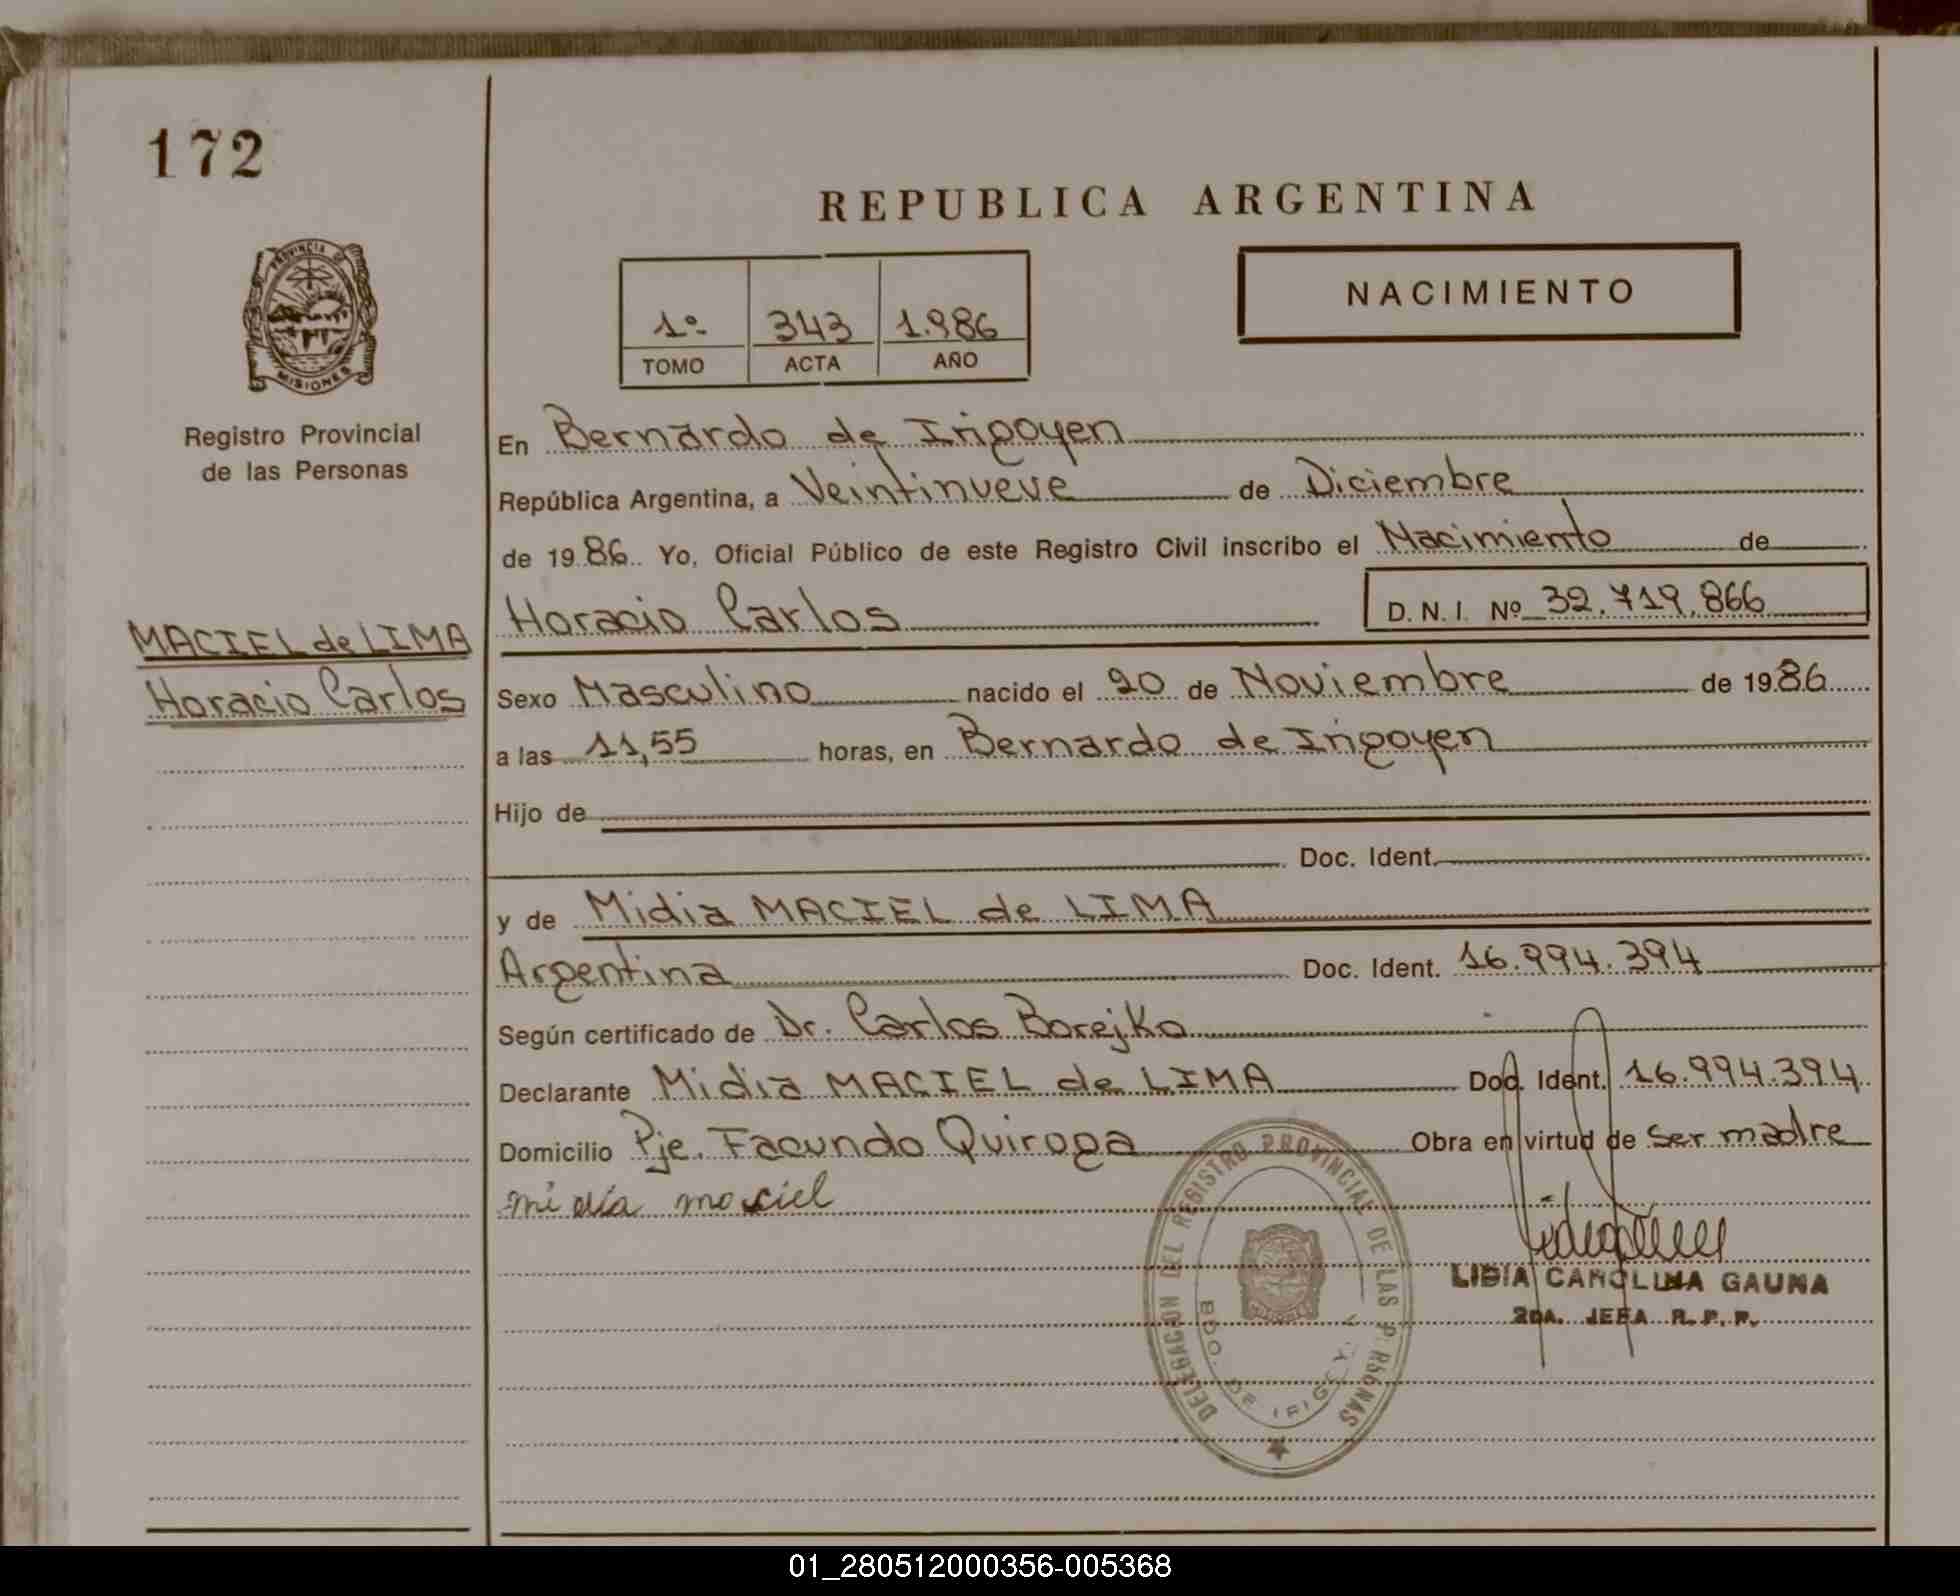 172
PROVINCIA DE
MISIONES
Registro Provincial
de las Personas
MACIEL de LIMA
Horacio Carlos
REPUBLICA ARGENTINA
1º 343 1.986
TOMO ACTA AÑO
NACIMIENTO
En Bernardo de Irigoyen
República Argentina, a Veintinueve de Diciembre
de 1986 Yo, Oficial Público de este Registro Civil inscribo el Nacimiento de
Horacio Carlos D. N. I. Nº 32.719.866
Sexo Masculino nacido el 20 de Noviembre de 1986
a las 11,55 horas, en Bernardo de Irigoyen
Hijo de
Doc. Ident.
y de Midia MACIEL de LIMA
Argentina Doc. Ident. 16.994.394
Según certificado de Dr. Carlos Borejko
Declarante Midia MACIEL de LIMA Doc. Ident. 16.994.394
Domicilio Pje. Facundo Quiroga Obra en virtud de ser madre
midia maciel
DELEGACION DEL REGISTRO PROVINCIAL DE LAS PERSONAS
BDO. DE IRIGOYEN
LIDIA CAROLINA GAUNA
2DA. JEFA R. P. P.
01_280512000356-005368